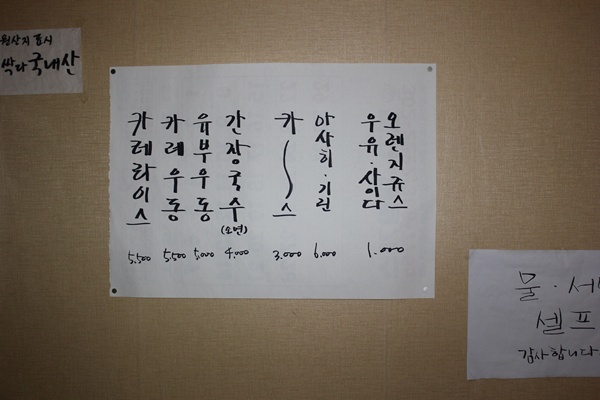 원산지 표시
싹다 국내산
카레라이스
5,500
카레우동
5,500
유부우동
5,000
간장국수
(소면)
4,000
카~스
3.000
아사히·기린
6.000
우유·사이다
오렌지쥬스
1.000
물·
셀프
감사합니다